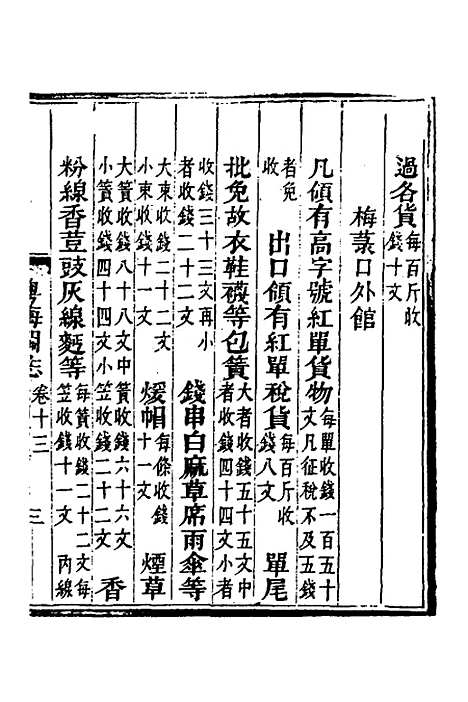 過各貨每百斤收錢十文
梅菉口外館
凡領有高字號紅單貨物每單收錢一百五十文凡征稅不及五錢
者免收 出口領有紅單稅貨每百斤收錢八文 單尾
批免故衣鞋襪等包簧大者收錢五十五文中者收錢四十四文小者
收錢三十三文再小者收錢二十二文 錢串白麻草席雨傘等
大束收錢二十二文小束收錢十一文 煖帽每條收錢十一文 煙草
大簧收錢八十八文中簧收錢六十六文小簧收錢四十四文小笠收錢二十二文 香
粉線香荳豉灰線麪等每簧收錢二十二文每笠收錢十一文 丙線
粵海關志 卷十三 三